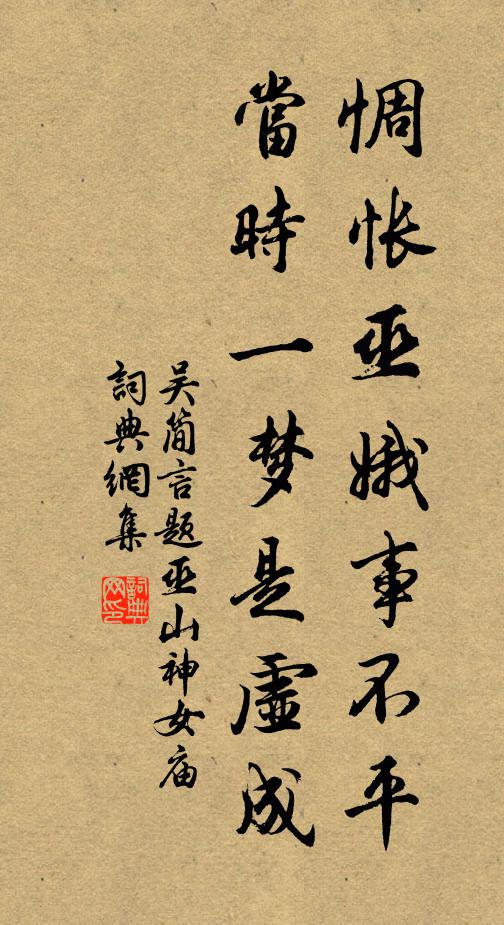 惆怅巫娥事不平
當時一梦是虛成
吴简言题巫山神女庙
詞典網集
詞典網印